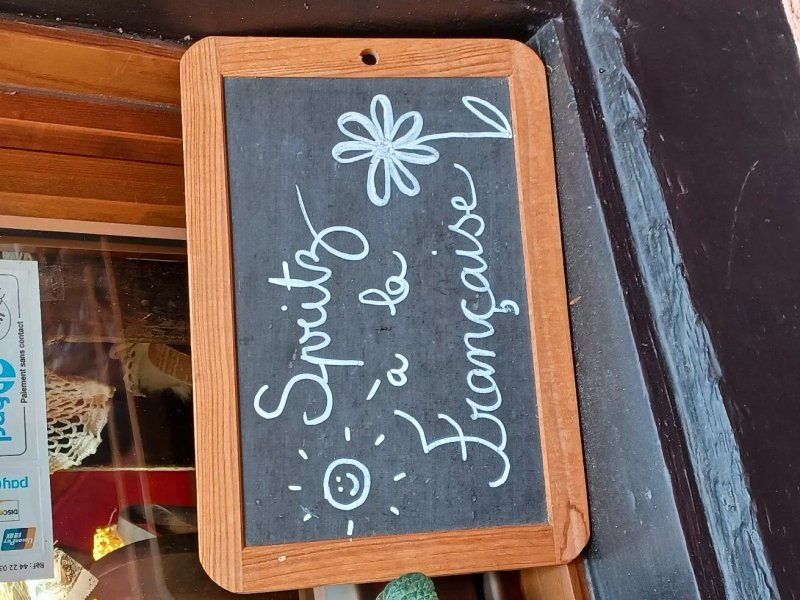 Spritz
à la
Française
Paiement sans contact
DISC
UnionPay
Réf : 44 22 03